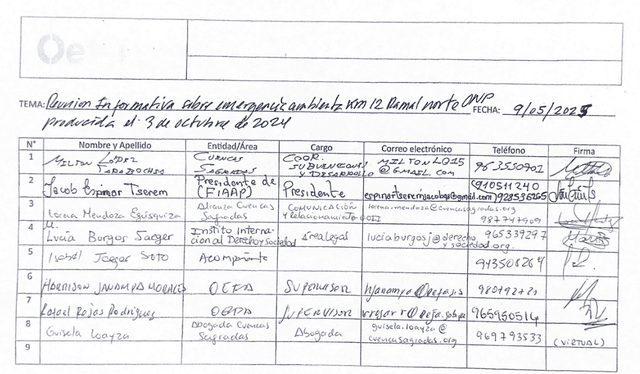 Oe
TEMA: Reunion Informativa sobre emergencia ambiental Km 12 Ramal norte ONP FECHA: 9/05/2025
producida el 3 de octubre de 2024
N° Nombre y Apellido Entidad/Área Cargo Correo electrónico Teléfono Firma
1 MILTON LOPEZ TARABOCHIA CUENCAS SAGRADAS COOR. SUBVENCIONES Y DESARROLLO MILTONLO15@GMAIL.COM 963550901
2 Jacob Espinar Tserem Presidente de (FIAAP) Presidente 910511240 928536265
3 Lorena Mendoza Eguisquiza M. Alianza Cuencas Sagradas COMUNICACIÓN y Relacionamiento lorena.mendoza@cuencasagradas.org
4 Lucía Burgos Jaeger Instituto Internacional Derecho y Sociedad Área legal luciaburgosj@derecho y sociedad.org. 965339297
5 Isabel Jaeger SOTO Acompañante 943506264
6 HARRISON JANAMPA MORALES OEFA SUPERVISOR
7 Rafael Rojas Rodriguez OEFA SUPERVISOR 965950514
8 Guisela Loayza Abogada Cuencas Sagradas Abogada guisela.loayza@cuencasagradas.org 969793533 (VIRTUAL)
9